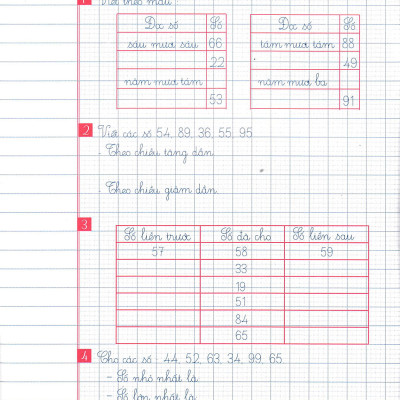 1 Viết theo mẫu
Đọc số Số Đọc số Số
sáu mươi sáu 66 tám mươi tám 88
22 49
năm mươi tám năm mươi ba
53 91
2 Viết các số 54, 89, 36, 55, 95
- Theo chiều tăng dần
- Theo chiều giảm dần
3
Số liền trước Số đã cho Số liền sau
57 58 59
33
19
51
84
65
4 Cho các số : 44, 52, 63, 34, 99, 65
- Số nhỏ nhất là
- Số lớn nhất là